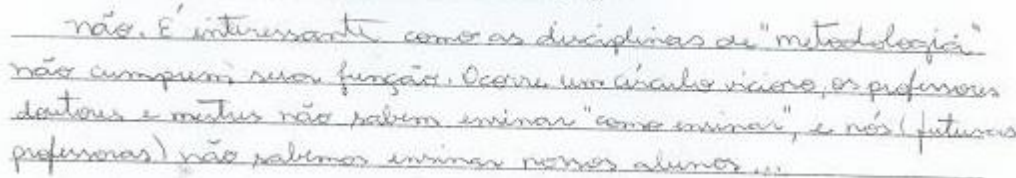 não. É interessante como as disciplinas de "metodologia"
não cumprem suas função. Ocorre um círculo vicioso, os professores
doutores e mestres não sabem ensinar "como ensinar", e nós (futuras
professoras) não sabemos ensinar nossos alunos...